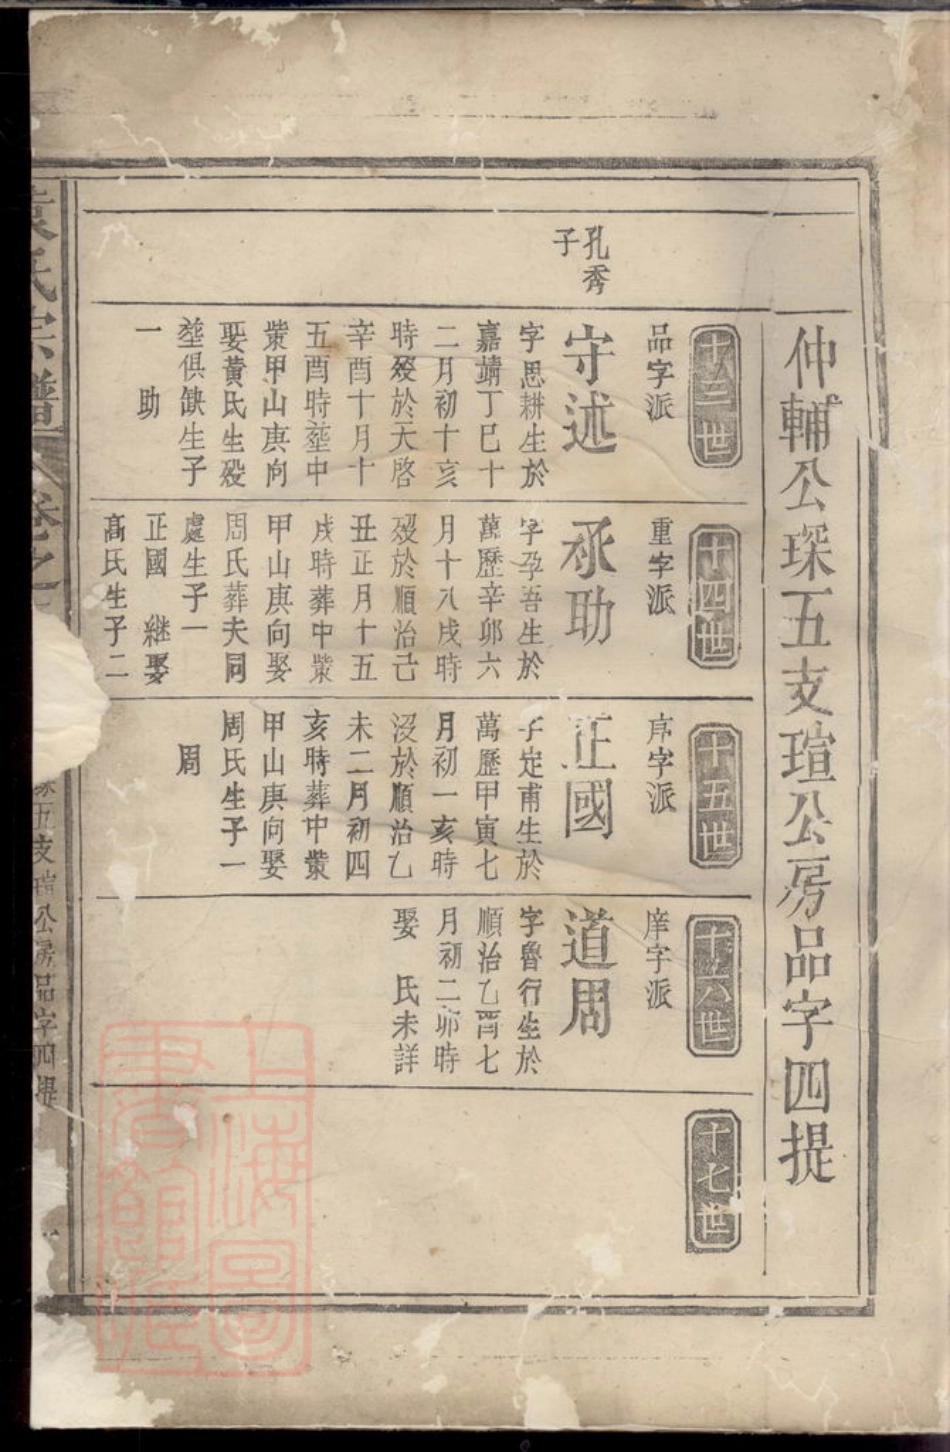 仲輔公琛五支瑄公房品字四提
十三世
品字派
孔秀
子
守述
字思耕生於
嘉靖丁巳十
二月初十亥
時歿於天啓
辛酉十月十
五酉時塟中
棠甲山庚向
娶黃氏生殁
塟俱缺生子
一　助
十四世
重字派
承助
字孕吾生於
萬歷辛卯六
月十八戌時
歿於順治己
丑正月十五
戌時葬中棠
甲山庚向娶
周氏葬夫同
處生子一
正國　継娶
髙氏生子二
十五世
序字派
正國
字定甫生於
萬歷甲寅七
月初一亥時
沒於順治乙
未二月初四
亥時葬中棠
甲山庚向娶
周氏生子一
周
十六世
庠字派
道周
字魯行生於
順治乙酉七
月初二卯時
娶　氏未詳
十七世
袁氏宗譜　卷之
琛五支瑄公房品字四提
上海圖
書館藏